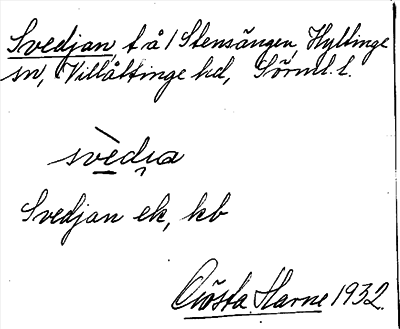 Svedjan, t å 1 Stensängen, Hyltinge
sn, Villåttinge hd, Sörml. l.
svèdi̯a
Svedjan ek, kb
Gösta Harne 1932.